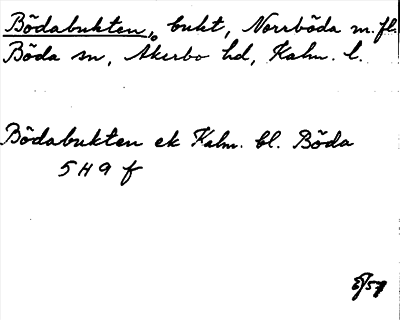 Bödabukten, bukt, Norrböda m.fl.
Böda sn, Åkerbo hd, Kalm. l.
Bödabukten ek Kalm. bl. Böda
5 H 9 f